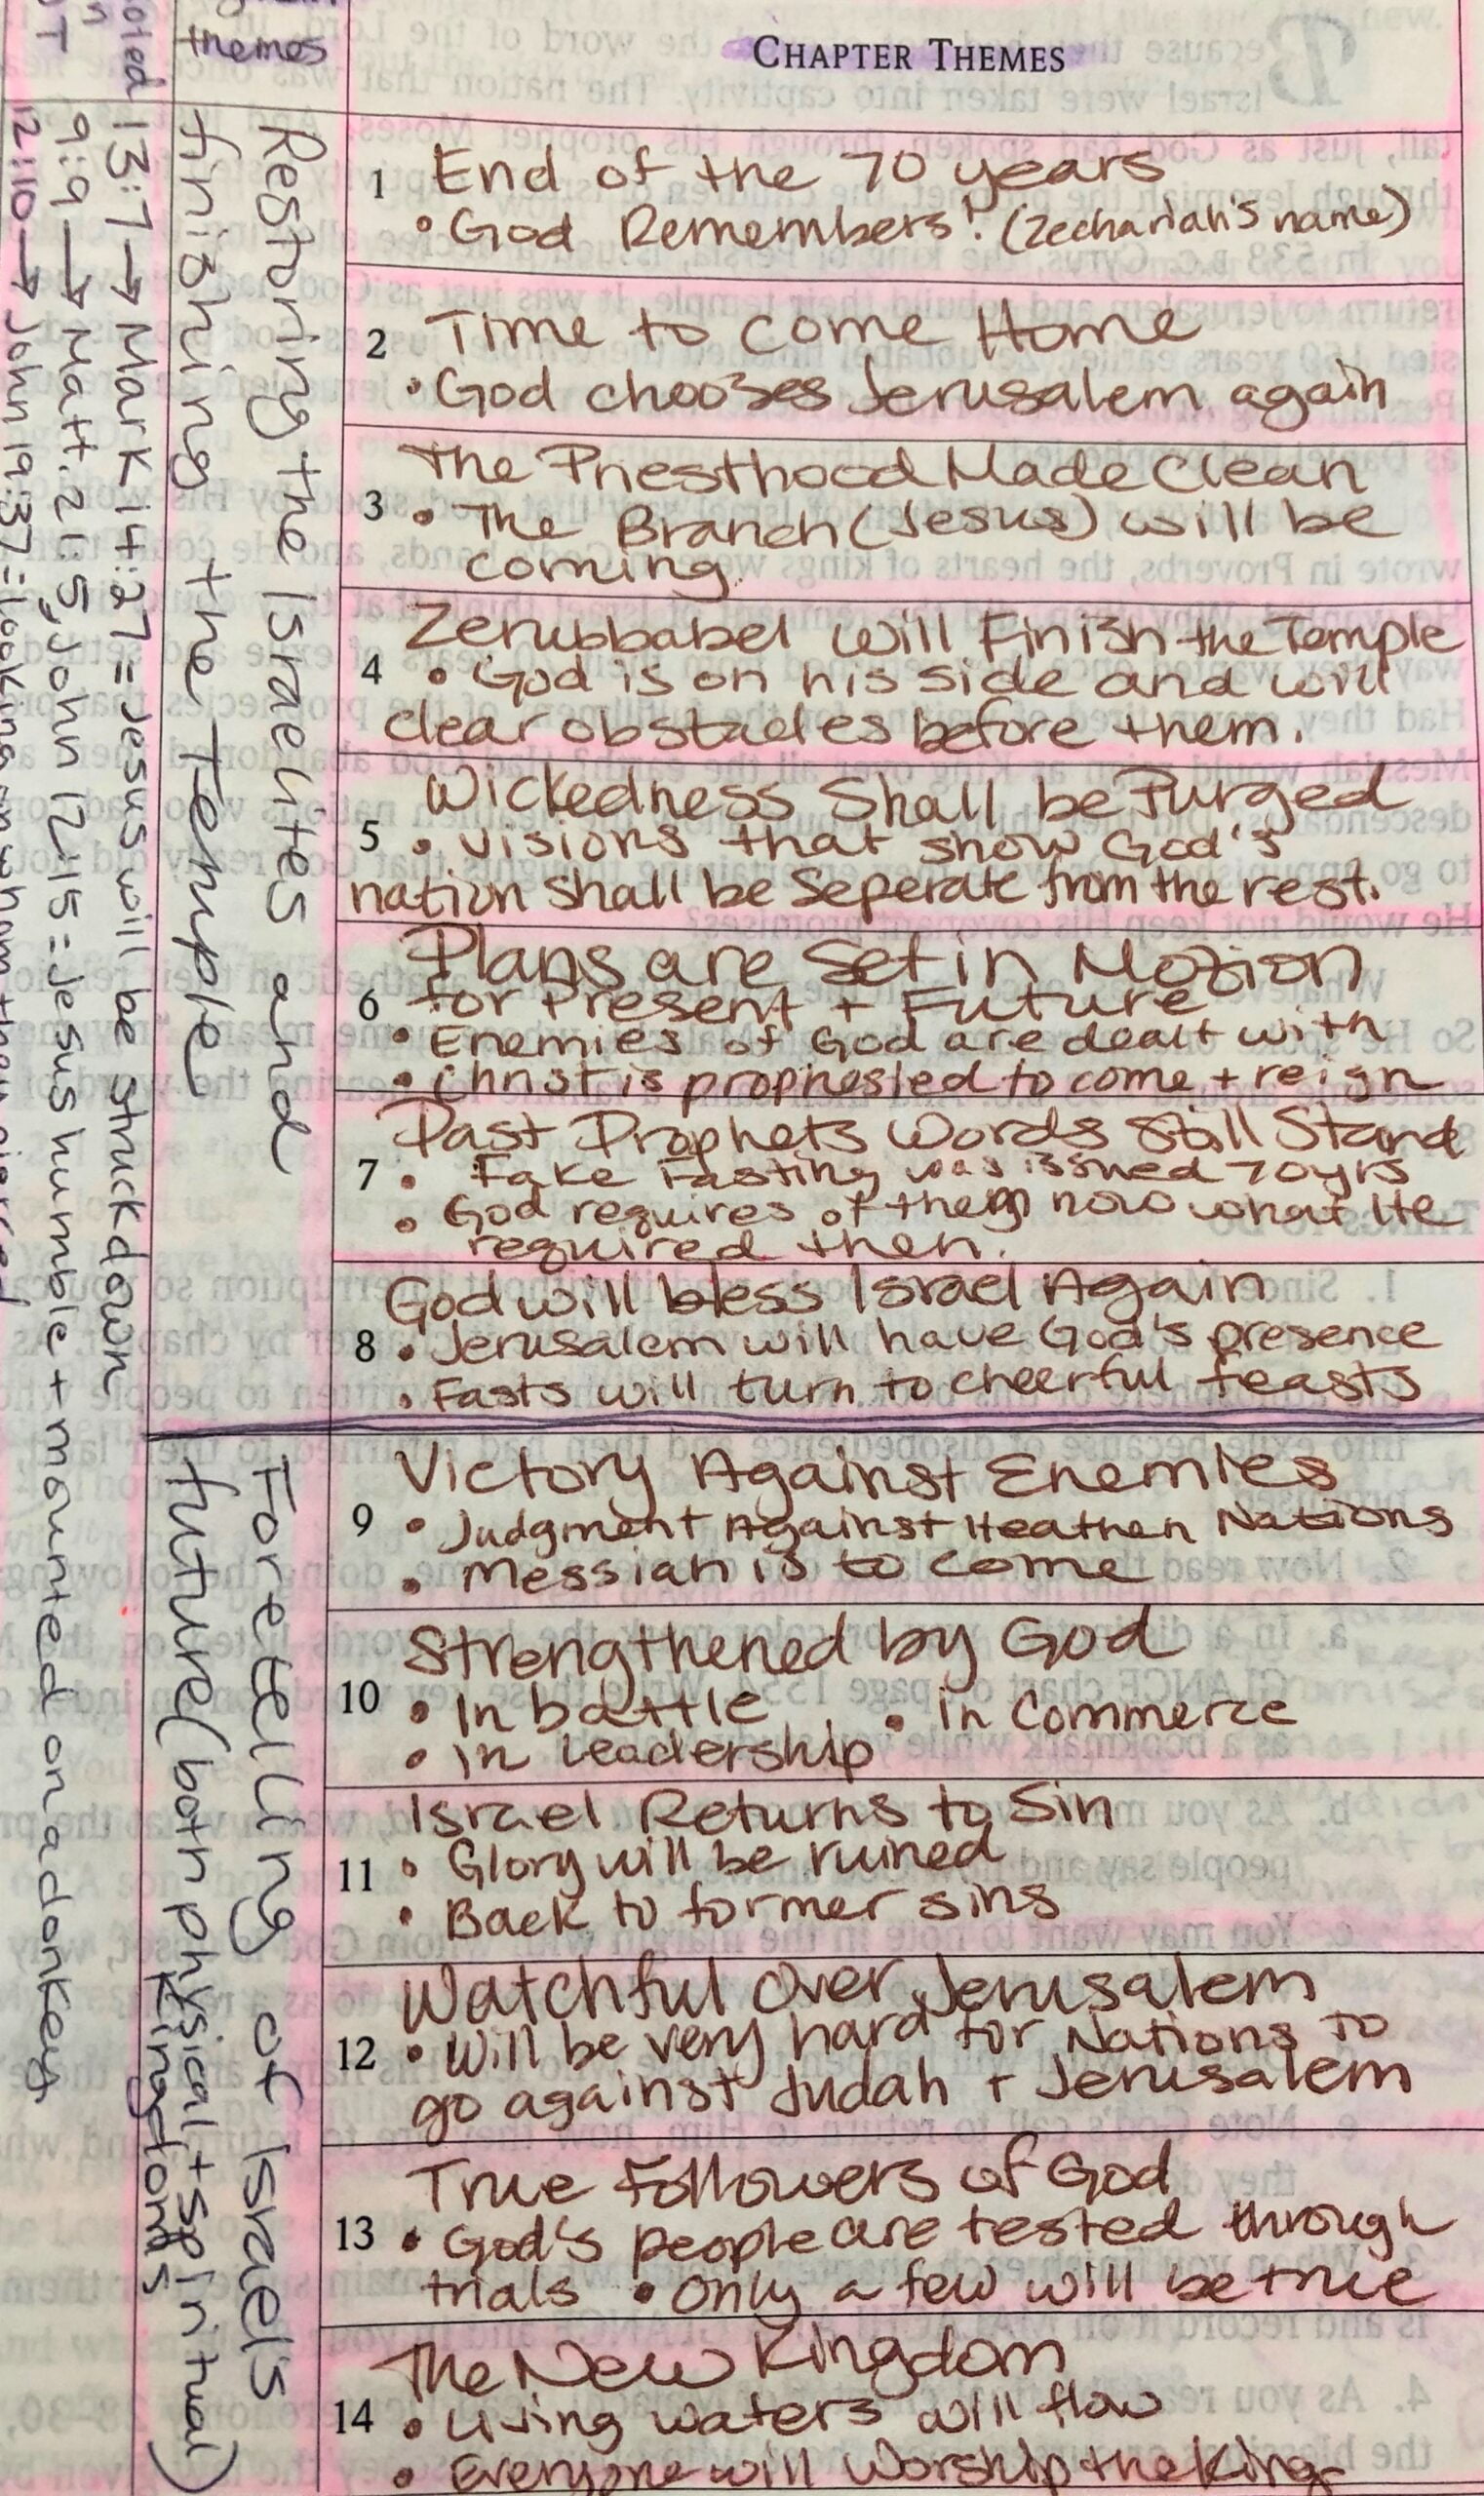 themes
CHAPTER THEMES
1 End of the 70 years
• God Remembers! (Zechariah's name)
2 Time to come Home
• God chooses Jerusalem again
The Priesthood Made Clean
3 • The Branch (Jesus) will be
coming.
Zerubbabel will Finish the Temple
4 • God is on his side and will
clear obstacles before them.
Wickedness Shall be Purged
5 • visions that show God's
nation shall be Seperate from the rest.
Plans are Set in Motion
6 for Present + Future
• Enemies of God are dealt with
• Christ is prophesied to come + reign
Past Prophets Words Still Stand
7 • Fake Fasting was issued 70yrs
• God requires of them now what He
required then.
God will bless Israel Again
8 • Jerusalem will have God's presence
• Fasts will turn to cheerful feasts
Victory Against Enemies
9 • Judgment Against Heathen Nations
• Messiah is to come
Strengthened by God
10 • In battle • in Commerce
• in Leadership
Israel Returns to Sin
11 • Glory will be ruined
• Back to former sins
Watchful Over Jerusalem
12 • Will be very hard for Nations to
go against Judah + Jerusalem
True Followers of God
13 • God's people are tested through
trials • Only a few will be true
The New Kingdom
14 • Living waters will flow
• Everyone will Worship the King
Restoring the Israelites and
finishing the Temple
Foretelling of Israel's
future (both physical + spiritual)
Kingdoms
13:7 → Mark 14:27 = Jesus will be struck down
9:9 → Matt. 21:5, John 12:15 = Jesus humble + mounted on a donkey
12:10 → John 19:37 = looking on whom they pierced